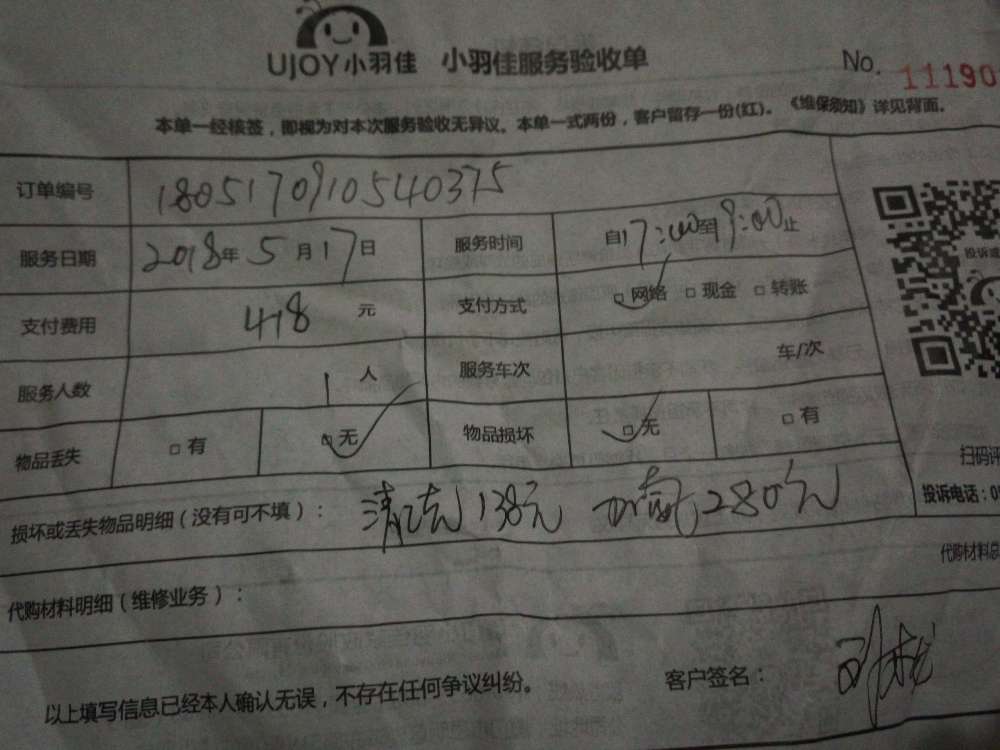 UJOY小羽佳 小羽佳服务验收单 No. 11190
本单一经核签，即视为对本次服务验收无异议。本单一式两份，客户留存一份(红)。《维保须知》详见背面。
订单编号 1805170910540375
服务日期 2018年5月17日 服务时间 自17:00至19:00止
支付费用 418元 支付方式 网络 现金 转账
服务人数 1人 服务车次 车/次
物品丢失 有 无 物品损坏 无 有
投诉
扫码评
投诉电话：0
损坏或丢失物品明细（没有可不填）： 清洗 138元 280元
代购材料总
代购材料明细（维修业务）：
以上填写信息已经本人确认无误，不存在任何争议纠纷。 客户签名：